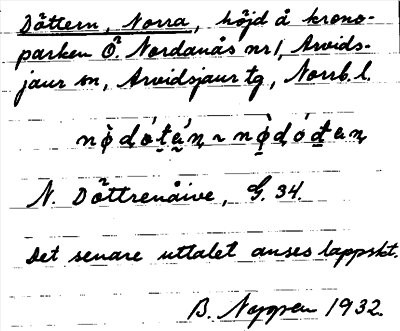 Dåttern, Norra, höjd å krono-
parken Ö. Nordanås nr 1, Arvids-
jaur sn, Arvidsjaur tg, Norrb. l.
N. Döttrenåive, G. 34.
Det senare uttalet anses lappskt.
B. Nygren 1932.